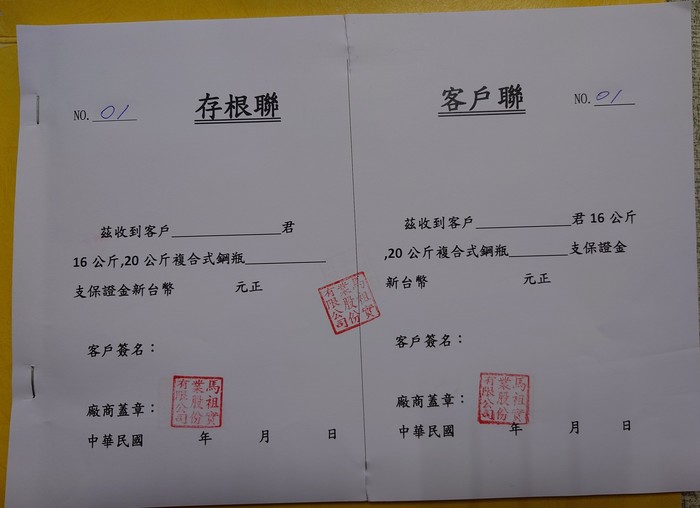 NO. 01
存根聯
茲收到客戶__________君
16 公斤,20 公斤複合式鋼瓶__________
支保證金新台幣 元正
客戶簽名：
廠商蓋章：
馬祖實
業股份
有限公司
中華民國 年 月 日
馬祖實
業股份
有限公司
客戶聯
NO. 01
茲收到客戶__________君 16 公斤
,20 公斤複合式鋼瓶______支保證金
新台幣 元正
客戶簽名：
廠商蓋章：
馬祖實
業股份
有限公司
中華民國 年 月 日